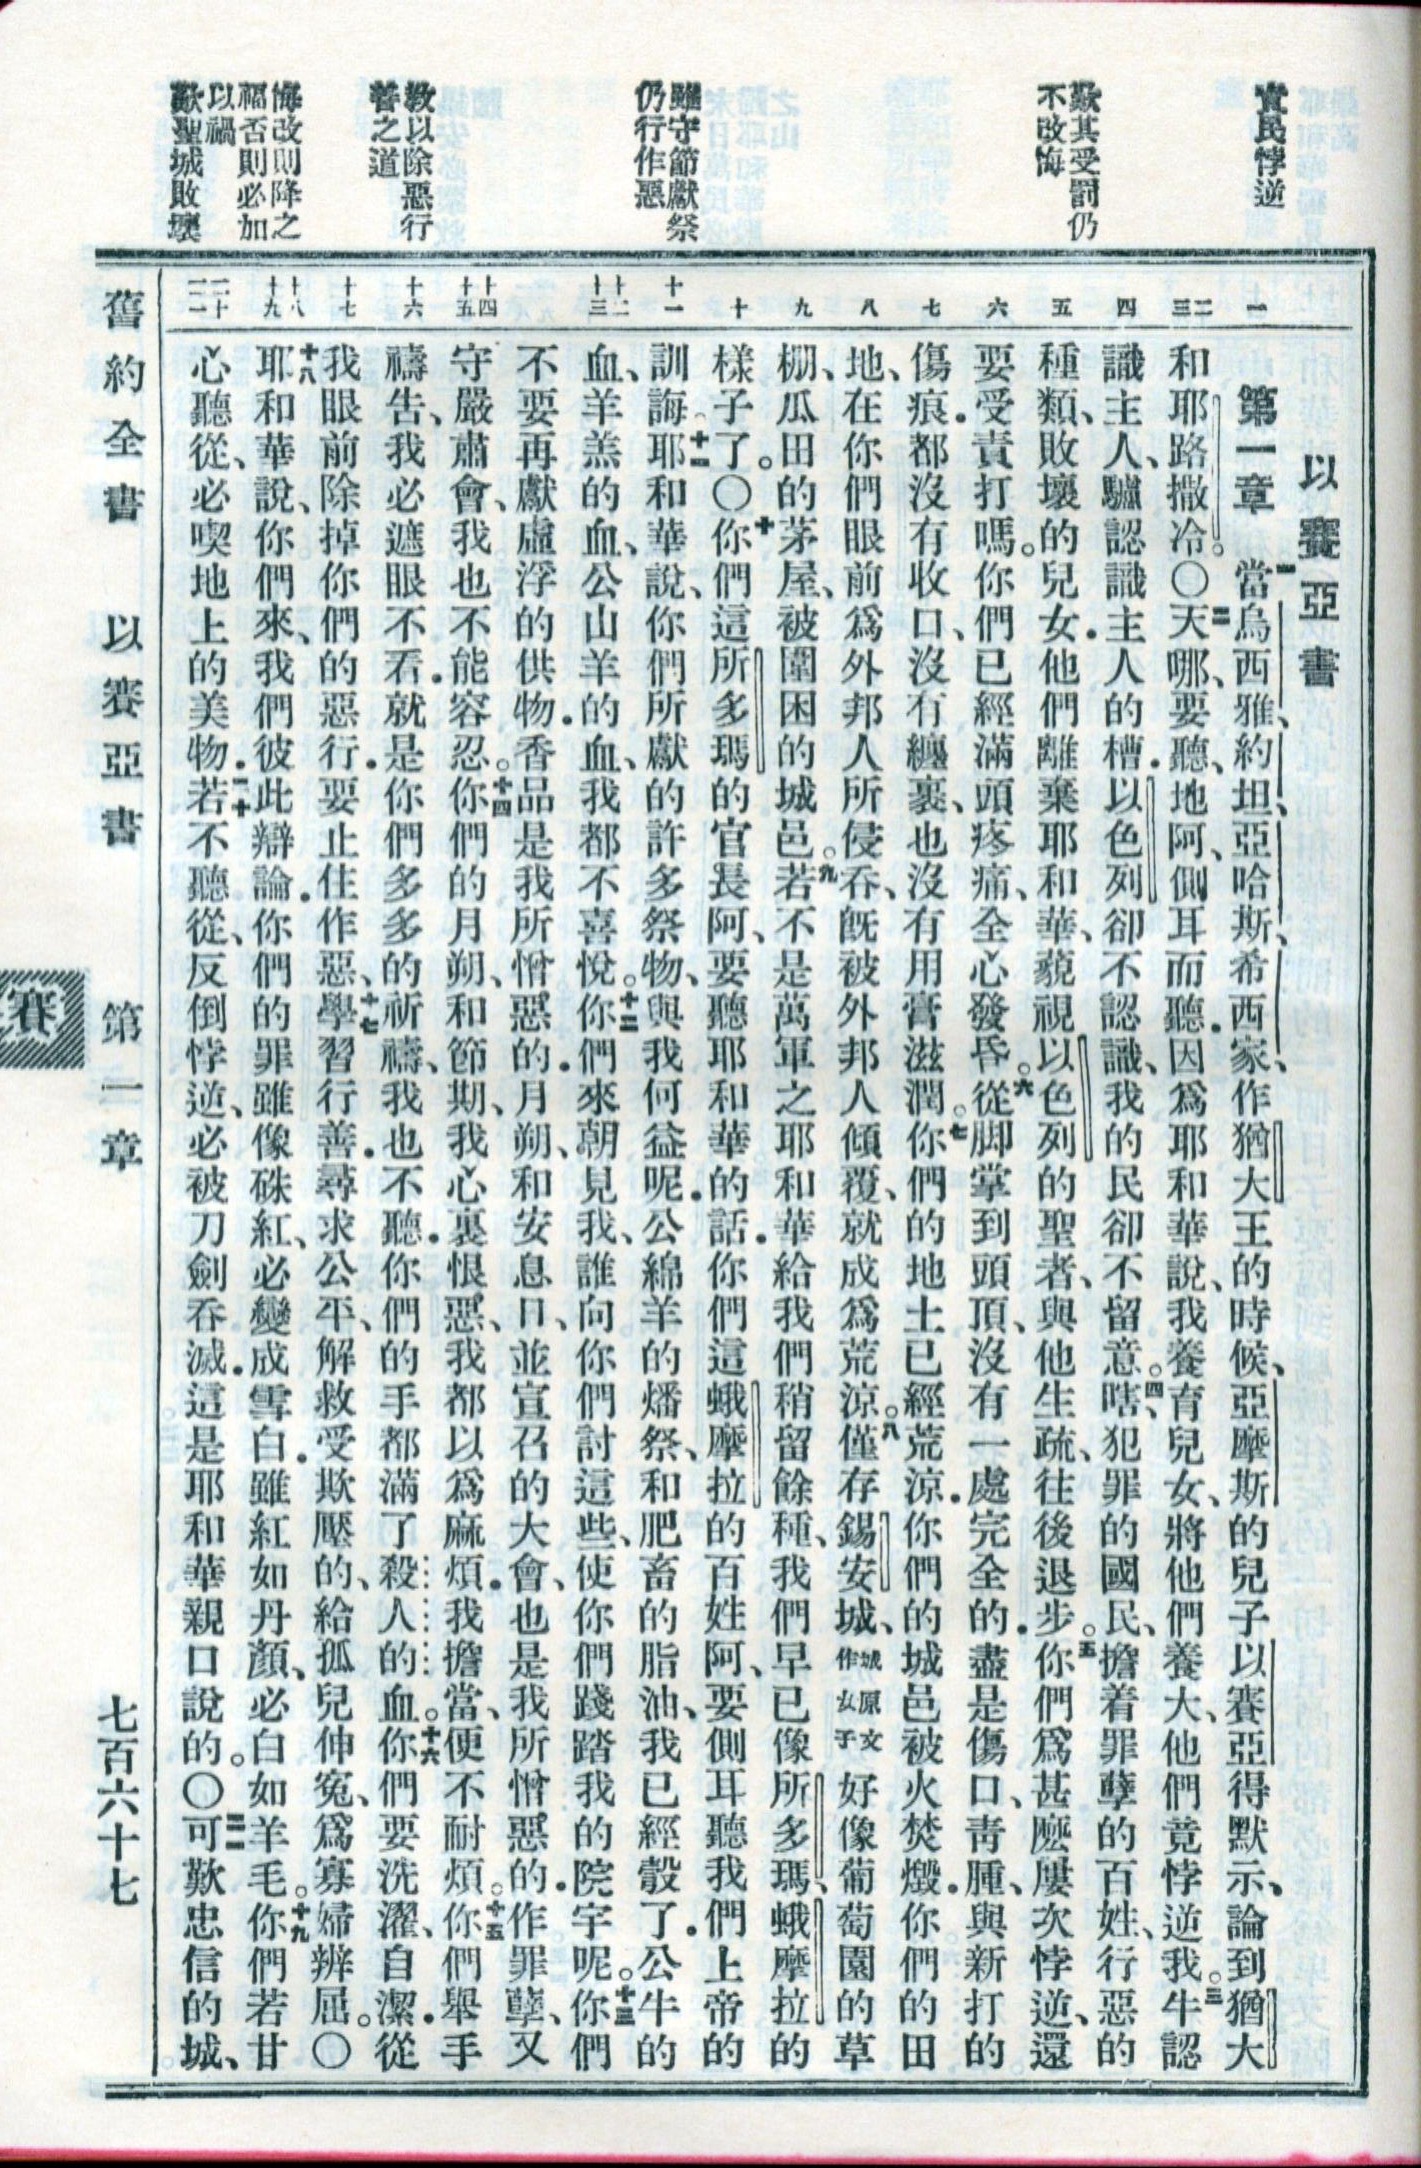 責民悖逆
歎其受罰仍
不改悔
雖守節獻祭
仍行作惡
敎以除惡行
善之道
悔改則降之
福否則必加
以禍
歎聖城敗壞
一
二
三
四
五
六
七
八
九
十
十一
十二
十三
十四
十五
十六
十七
十八
十九
二十
二一
以賽亞書
第一章 一當烏西雅、約坦、亞哈斯、希西家、作猶大王的時候、亞摩斯的兒子以賽亞得默示、論到猶大
和耶路撒冷。〇二天哪、要聽、地阿、側耳而聽．因爲耶和華說、我養育兒女、將他們養大、他們竟悖逆我。三牛認
識主人、驢認識主人的槽．以色列卻不認識、我的民卻不留意。四嗐、犯罪的國民、擔着罪孽的百姓、行惡的
種類、敗壞的兒女．他們離棄耶和華、藐視以色列的聖者、與他生疏、往後退步。五你們爲甚麽屢次悖逆、還
要受責打嗎。你們已經滿頭疼痛、全心發昏。六從脚掌到頭頂、沒有一處完全的．盡是傷口、靑腫、與新打的
傷痕．都沒有收口、沒有纏裹、也沒有用膏滋潤。七你們的地土已經荒涼．你們的城邑被火焚燬．你們的田
地、在你們眼前爲外邦人所侵吞、旣被外邦人傾覆、就成爲荒涼。八僅存錫安城、城原文作女子好像葡萄園的草
棚、瓜田的茅屋、被圍困的城邑。九若不是萬軍之耶和華給我們稍留餘種、我們早已像所多瑪、蛾摩拉的
樣子了。〇十你們這所多瑪的官長阿、要聽耶和華的話．你們這蛾摩拉的百姓阿、要側耳聽我們上帝的
訓誨。十一耶和華說、你們所獻的許多祭物、與我何益呢．公綿羊的燔祭、和肥畜的脂油、我已經彀了．公牛的
血、羊羔的血、公山羊的血、我都不喜悅。十二你們來朝見我、誰向你們討這些、使你們踐踏我的院宇呢。十三你們
不要再獻虛浮的供物．香品是我所憎惡的．月朔、和安息日、並宣召的大會、也是我所憎惡的．作罪孽、又
守嚴肅會、我也不能容忍。十四你們的月朔、和節期、我心裏恨惡、我都以爲麻煩．我擔當、便不耐煩。十五你們舉手
禱告、我必遮眼不看．就是你們多多的祈禱、我也不聽．你們的手都滿了殺人的血。十六你們要洗濯、自潔．從
我眼前除掉你們的惡行．要止住作惡、十七學習行善．尋求公平、解救受欺壓的、給孤兒伸寃、爲寡婦辨屈。〇
十八耶和華說、你們來、我們彼此辯論．你們的罪雖像硃紅、必變成雪白．雖紅如丹顏、必白如羊毛。十九你們若甘
心聽從、必喫地上的美物．二十若不聽從、反倒悖逆、必被刀劍吞滅．這是耶和華親口說的。〇二一可歎忠信的城、
舊約全書 以賽亞書 第一章 七百六十七
賽